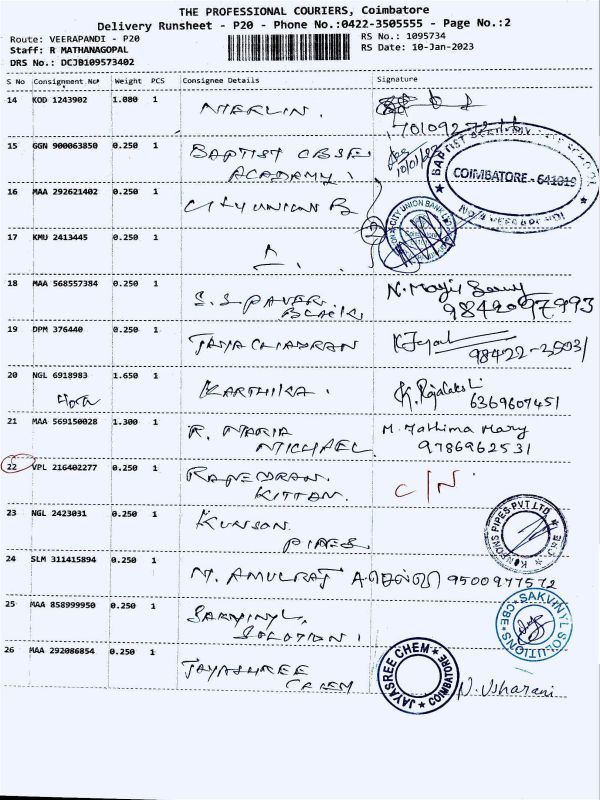 THE PROFESSIONAL COURIERS, Coimbatore
Delivery Runsheet - P20 - Phone No.:0422-3505555 - Page No.:2
Route: VEERAPANDI - P20
RS No.: 1095734
Staff: R MATHANAGOPAL
RS Date: 10-Jan-2023
DRS No.: DCJB109573402
S No Consignment No Weight PCS Consignee Details Signature
14 KOD 1243902 1.080 1 MERLIN.
15 GGN 900063850 0.250 1 BAPTIST CBSE
10/01/23
ACADEMY
COIMBATORE - 641019
16 MAA 292621402 0.250 1 CITY UNION B
CITY UNION BANK LTD
17 KMU 2413445 0.250 1
18 MAA 568557384 0.250 1 S.S PAVER
BLOCK
9842097993
19 DPM 376440 0.250 1 JAYA CHADRAN
98422-35031
20 NGL 6918983 1.650 1 KARTHIKA. K. Rajalaksh
6369607451
21 MAA 569150028 1.300 1 R. MARIA M. Fathima Mary
MICHAEL 9786962531
22 VPL 216402277 0.250 1 RAJENDRAN C/N
KITTAN.
23 NGL 2423031 0.250 1 KUNSON
PIPES
PIPES PVT LTD
24 SLM 311415894 0.250 1 M. AMULRAJ 9500977572
25 MAA 858999950 0.250 1 SAKVINYL
SOLUTION
SAKVINYL SOLUTIONS CBE
26 MAA 292086854 0.250 1 JAYASHREE
CHEM
JAYASREE CHEM COIMBATORE
N. Usharani